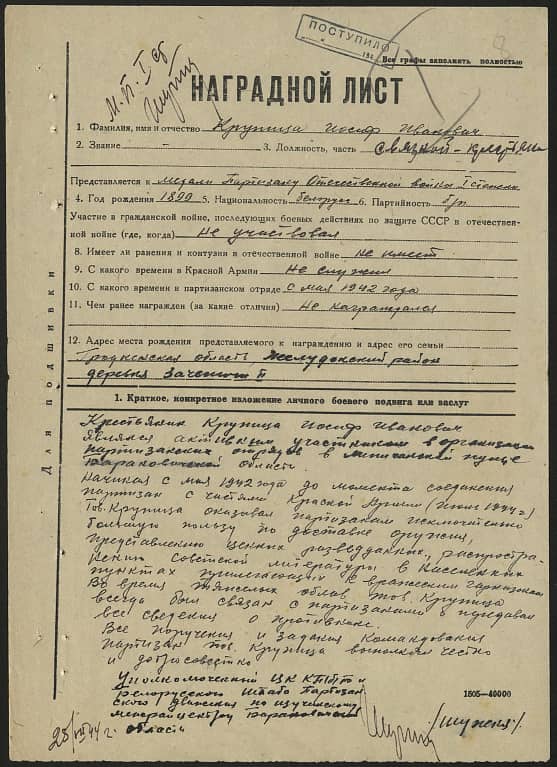 ПОСТУПИЛО
М. П. I ст
Все графы заполнять полностью
НАГРАДНОЙ ЛИСТ
1. Фамилия, имя и отчество Крупица Иосиф Иванович
2. Звание - 3. Должность, часть связной - крестьянин
Представляется к медали Партизану Отечественной войны I степени
4. Год рождения 1899 5. Национальность белорус 6. Партийность б/п
Участие в гражданской войне, последующих боевых действиях по защите СССР в отечествен-
ной войне (где, когда) Не участвовал
8. Имеет ли ранения и контузии в отечественной войне не имеет
9. С какого времени в Красной Армии Не служил
10. С какого времени в партизанском отряде с мая 1942 года
11. Чем ранее награжден (за какие отличия) Не награждался
12. Адрес места рождения представляемого к награждению и адрес его семьи
Гродненская область Желудокский район
деревня II
Для подшивки
1. Краткое, конкретное изложение личного боевого подвига или заслуг
Крестьянин Крупица Иосиф Иванович
являлся активным участником в организации
партизанских отрядов в Липичанской пуще
Барановичской области.
Начиная с мая 1942 года до момента соединения
партизан с частями Красной Армии (июль 1944 г)
Тов. Крупица оказывал партизанам исключительно
большую пользу по доставке оружия,
представлению ценных разведданных, распростра-
нению Советской литературы в населенных
пунктах прилегающих к вражеским гарнизонам
Во время тяжелых облав тов. Крупица
всегда был связан с партизанами и передавал
все сведения о противнике.
Все поручения и задания командования
партизан тов. Крупица выполнял честно
и добросовестно
Уполномоченный ЦК КП(б)Б и
Белорусского Штаба Партизан
ского Движения по
Барановичской
области
1505—40000
28/VIII 44 г.